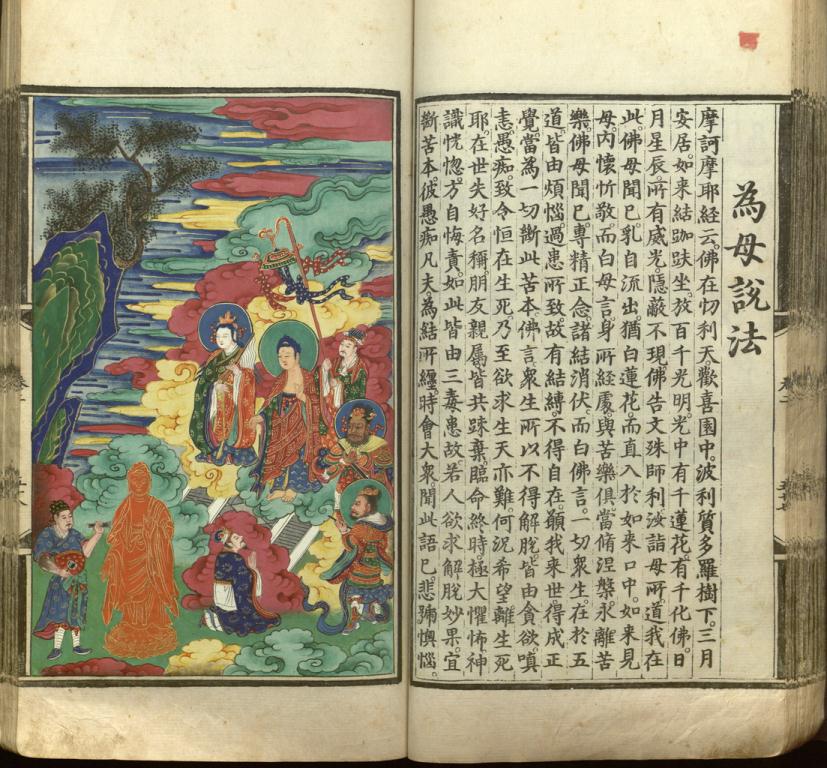 為母說法
摩訶摩耶経云。佛在忉利天歡喜園中。波利質多羅樹下。三月
安居。如来結跏趺坐。放百千光明。光中有千蓮花。有千化佛。日
月星辰。所有威光。隱蔽不現。佛告文殊師利。汝詣母所。道我在
此。佛母聞已。乳自流出。猶白蓮花。而直入於如来口中。如来見
母。内懷忻敬。而白母言。身所經處。與苦樂俱。當脩涅槃。永離苦
樂。佛母聞已。專精正念。諸結消伏。而白佛言。一切衆生。在於五
道。皆由煩惱。過患所致。故有結縛。不得自在。願我来世。得成正
覺。當為一切。斷此苦本。佛言。衆生所以不得解脫。皆由貪欲。嗔
恚。愚痴。致令恒在生死。乃至欲求生天亦難。何況希望離生死
耶。在世失好名稱。朋友親屬。皆共踈棄。臨命終時。極大懼怖。神
識恍惚。方自悔責。如此皆由三毒患故。若人欲求解脫妙果。宜
斷苦本。彼愚痴凡夫。為結所纏。時會大衆。聞此語已。悲號懊惱。